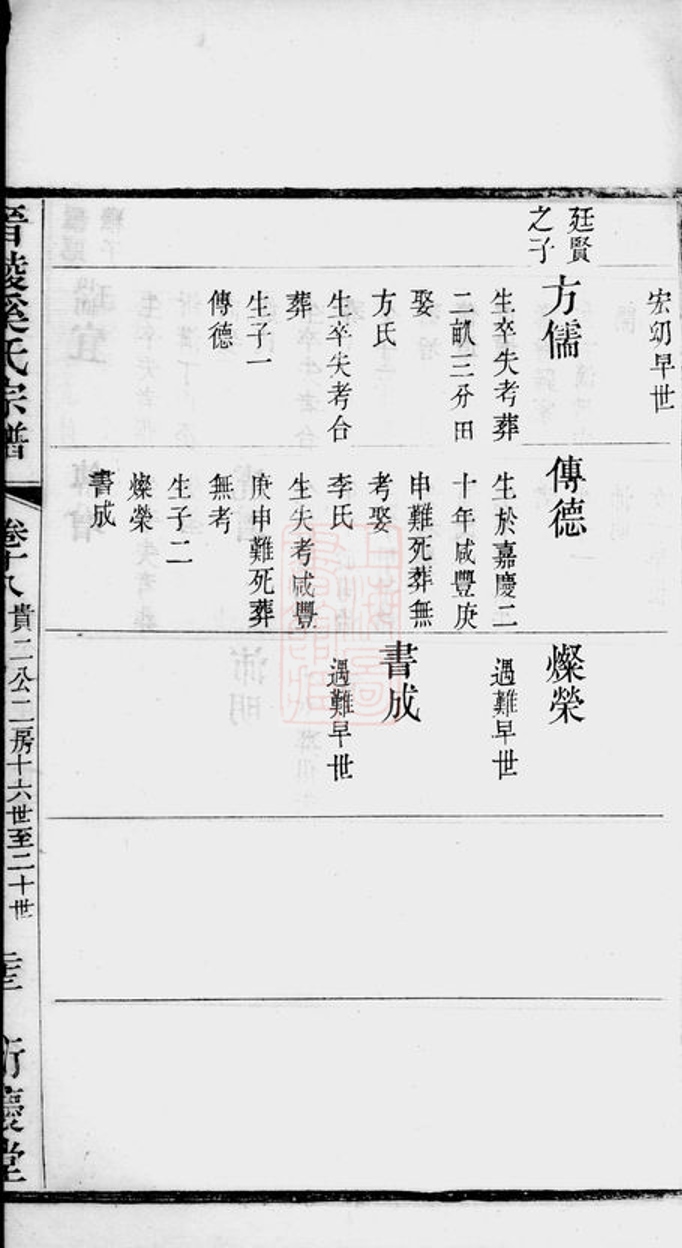 宏仞早世
廷賢
之子
方儒
生卒失考葬
二畝三分田
娶
方氏
生卒失考合
葬
生子一
傳德
傳德
生於嘉慶二
十年咸豐庚
申難死葬無
考娶
李氏
生失考咸豐
庚申難死葬
無考
生子二
燦榮
書成
燦榮
遇難早世
書成
遇難早世
晋陵奚氏宗譜
卷十八
貴二公二房十六世至二十世
衍慶堂